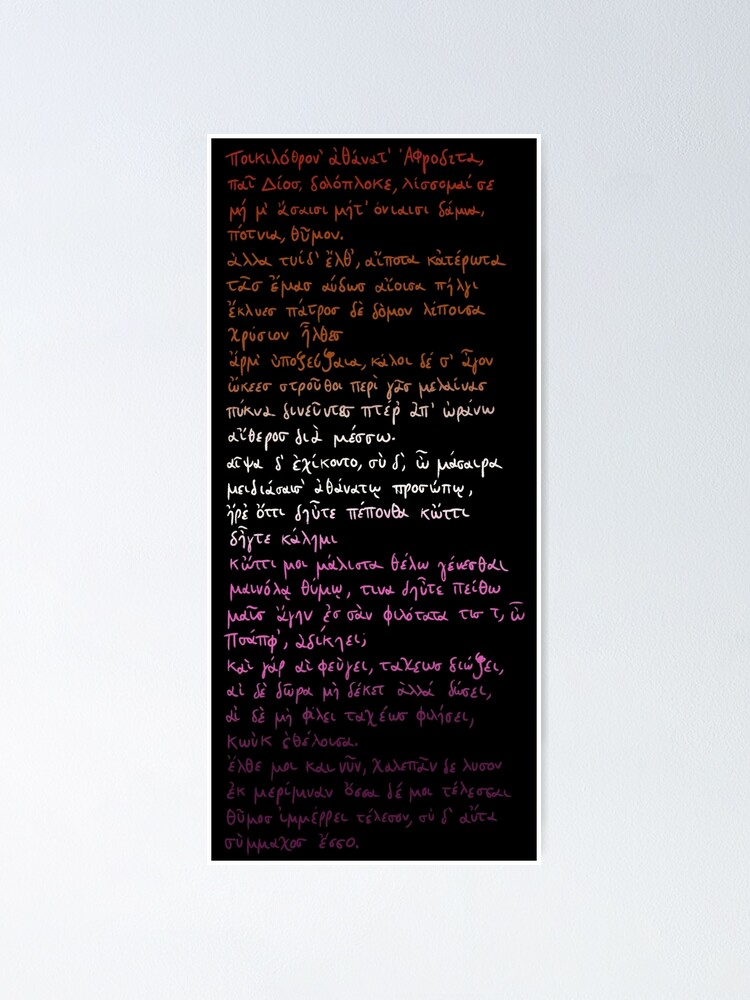 ποικιλόθρον' ἀθάνατ' Ἀφροδιτα,
παῖ Δίοσ, δολόπλοκε, λίσσομαί σε
μή μ' ἄσαισι μήτ' ὀνιαισι δάμνα,
πότνια, θῦμον.
ἀλλα τυίδ' ἔλθ', αἴποτα κἀτέρωτα
τᾶσ ἔμασ αὔδωσ αἴοισα πήλγι
ἔκλυεσ πάτροσ δὲ δόμον λίποισα
χρύσιον ἦλθεσ
ἄρμ' ὐποζεύξαια, κάλοι δέ σ' ἆγον
ὤκεεσ στροῦθοι περὶ γᾶσ μελαίνασ
πύκνα δινεῦντεσ πτέρ' ἀπ' ὠράνω
αἴθεροσ διὰ μέσσω.
αῖψα δ' ἐχίκοντο, σὺ δ', ὦ μάσαιρα
μειδιάσαισ' ἀθάνατῳ προσώπῳ,
ἤρὲ ὄττι δηὖτε πέπονθα κὤττι
δῆγτε κάλημι
κὤττι μοι μάλιστα θέλω γένεσθαι
μαινόλᾳ θύμῳ, τινα δηὖτε πείθω
μαῖσ ἄγην ἐσ σὰν φιλότατα τισ τ, ὦ
Πσάπφ', ἀδίκηει;
καὶ γάρ αἰ φεύγει, ταχεωσ διώξει,
αἰ δὲ δῶρα μὴ δέκετ ἀλλά δώσει,
αἰ δὲ μὴ φίλει ταχέωσ φιλήσει,
κωὐκ ἐθέλοισα.
ἔλθε μοι και νῦν, χαλεπᾶν δε λυσον
ἐκ μερίμναν ὄσσα δέ μοι τέλεσσαι
θῦμοσ ἰμμέρρει τέλεσον, σύ δ' αὔτα
σὺμμαχοσ ἔσσο.